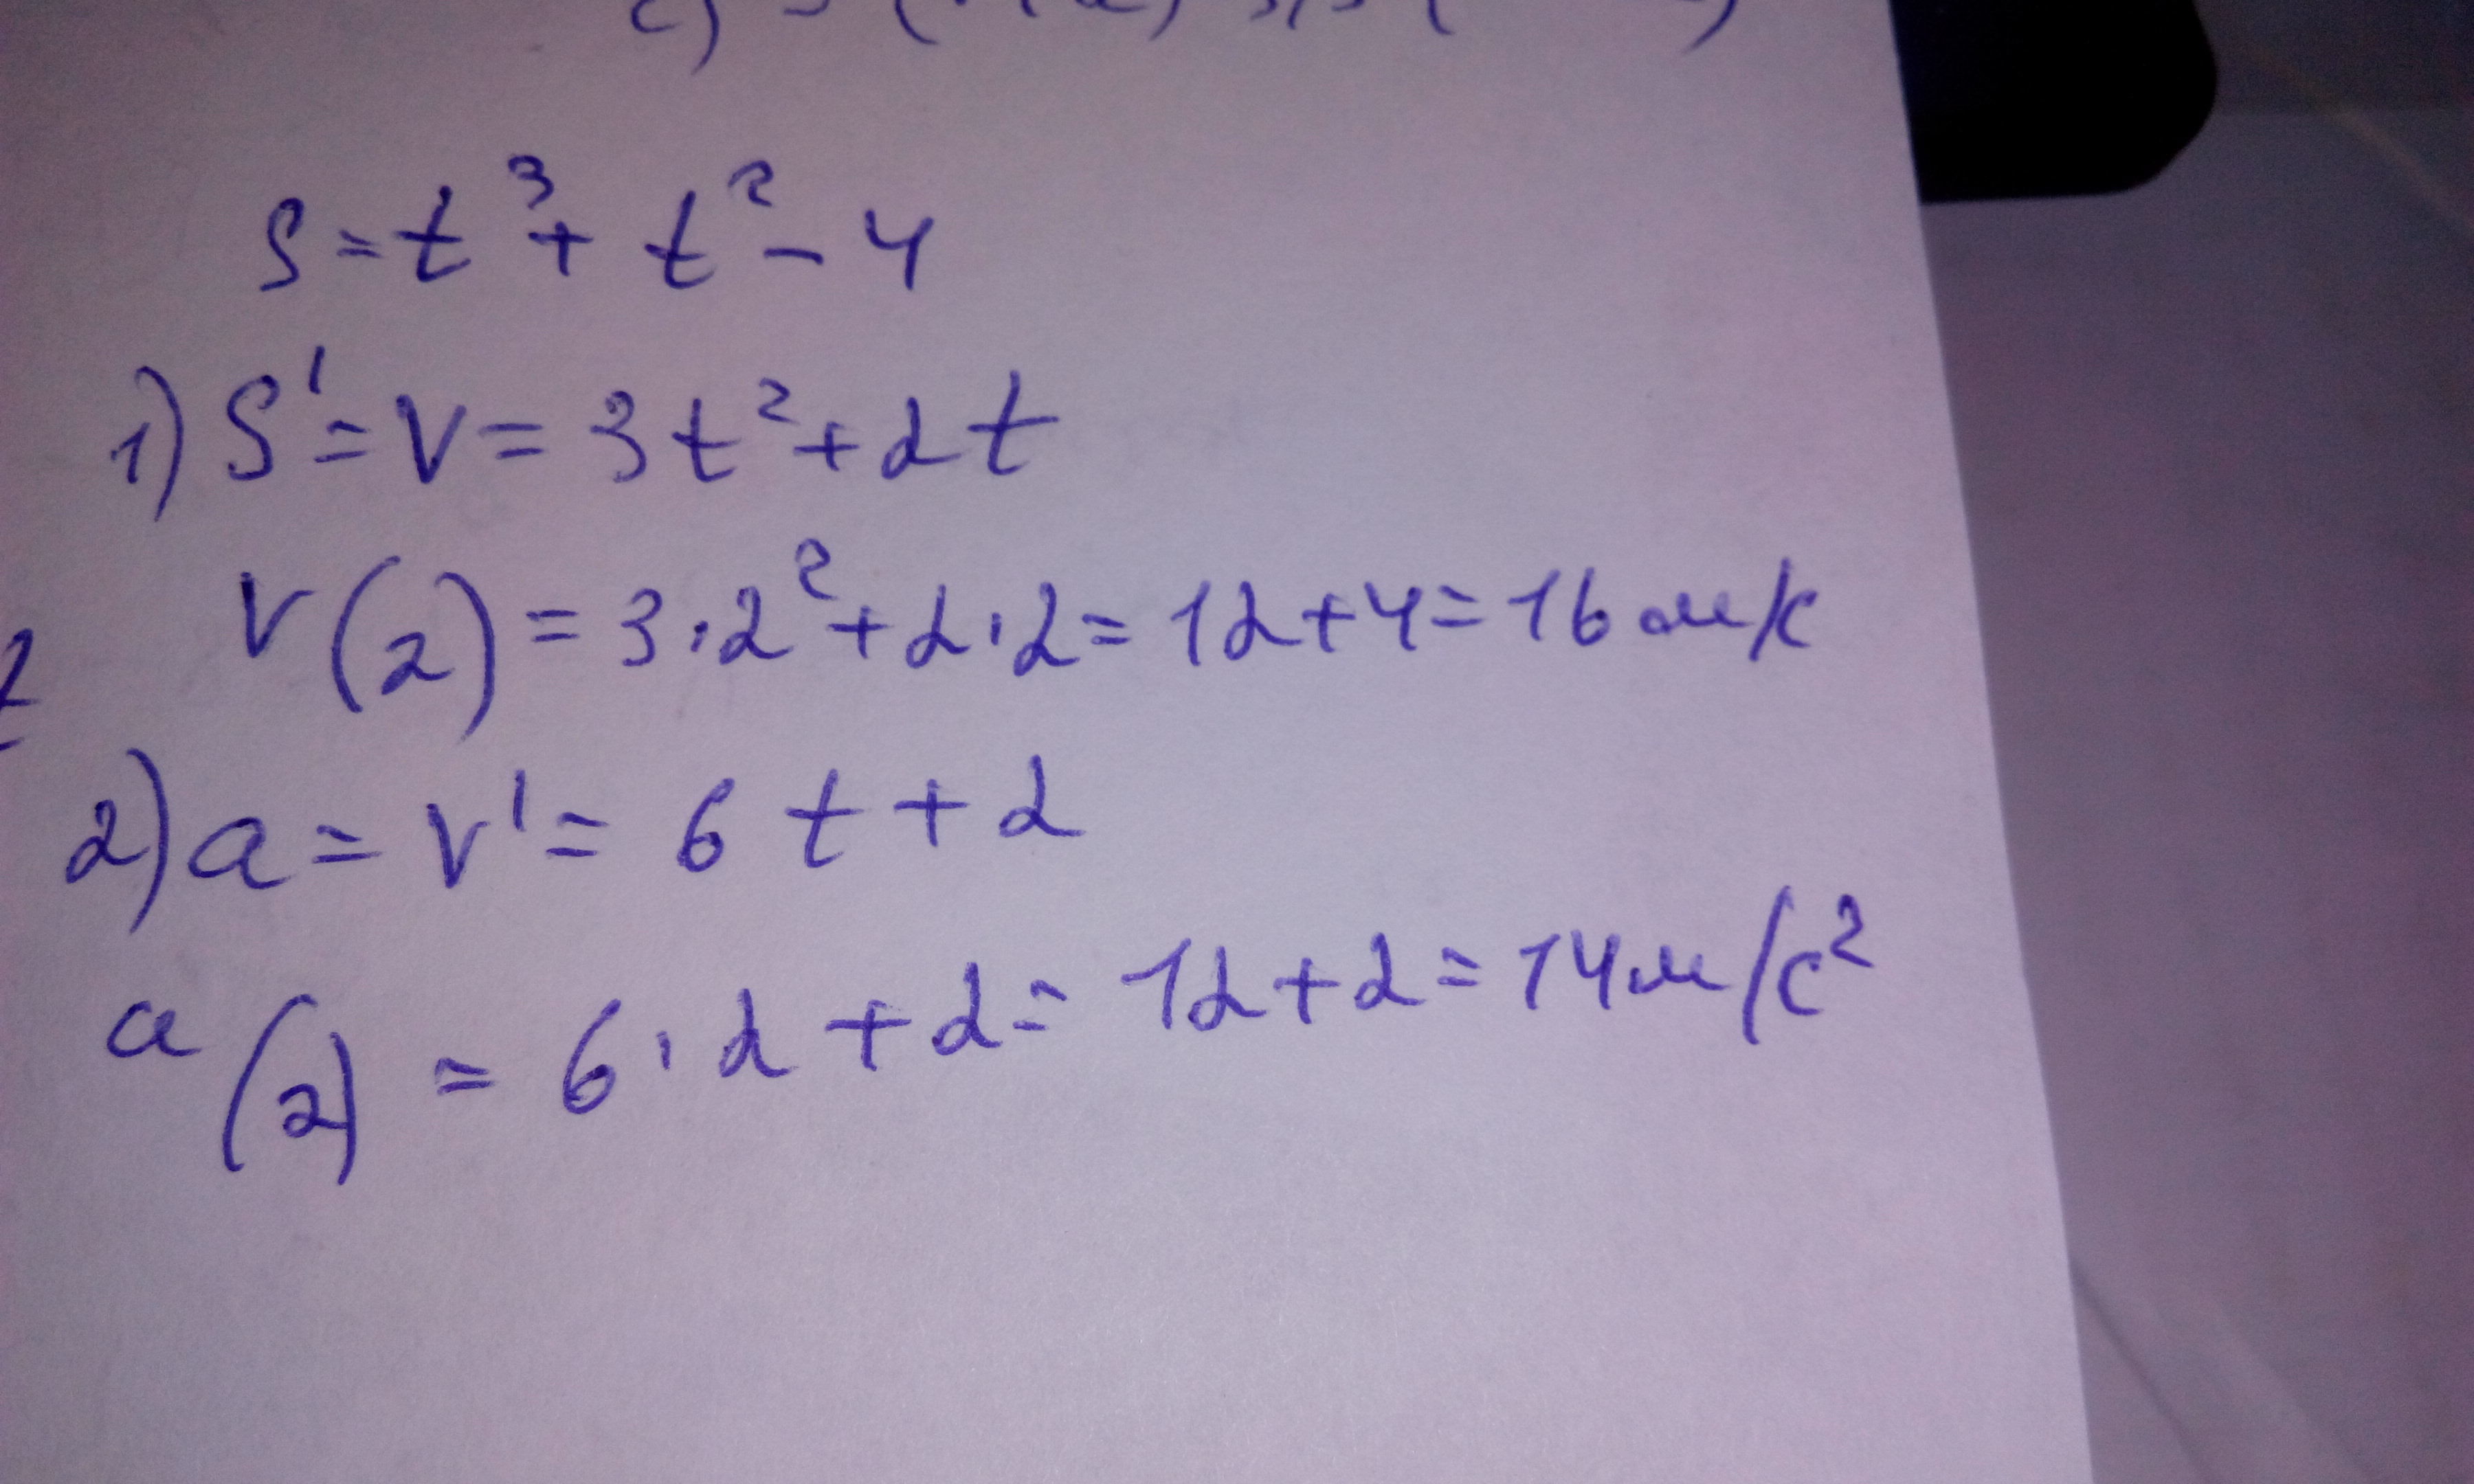 S = t³ + t² - 4
1) S' = V = 3t² + 2t
V(2) = 3·2² + 2·2 = 12 + 4 = 16 м/с
2) a = V' = 6t + 2
a(2) = 6·2 + 2 = 12 + 2 = 14 м/с²